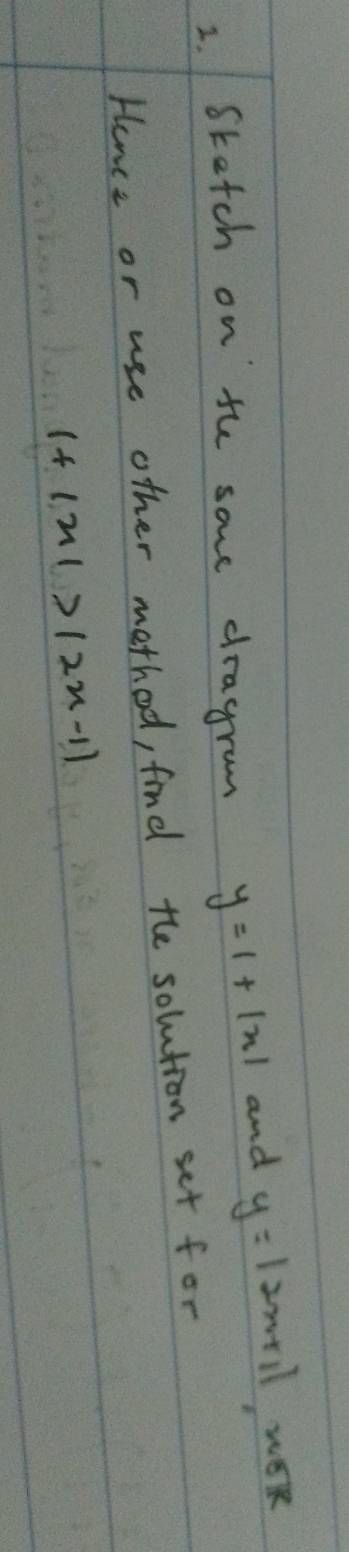 2. Sketch on the same diagram y = 1 + |x| and y = |2x+1|, x∈ℝ
Hence or use other method, find the solution set for
1 + |x| > |2x-1|